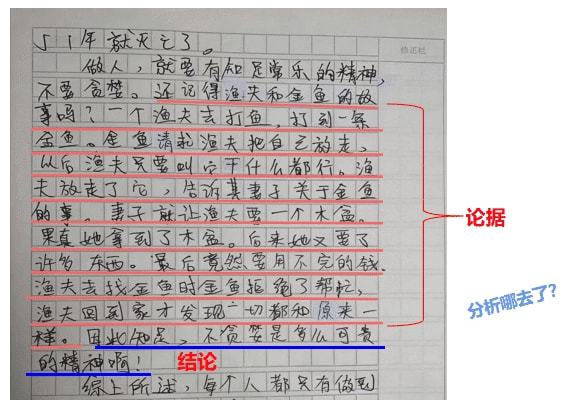 了1年就灭亡了。
修正栏
做人，就要有知足常乐的精神，
不要贪婪。还记得渔夫和金鱼的故
事吗？一个渔夫去打鱼，打到一条
金鱼。金鱼请求渔夫把自己放走，
以后渔夫只要叫它干什么都行。渔
夫放走了它，告诉其妻子关于金鱼
的事。妻子就让渔夫要一个木盆。
果真她拿到了木盆。后来她又要了
许多东西。最后竟然要用不完的钱.
渔夫去找金鱼时金鱼拒绝了帮忙，
渔夫回到家才发现一切都和原来一
样。因此知足，不贪婪是多么可贵
的精神啊！
综上所述，每个人都只有做到
论据
分析哪去了?
结论